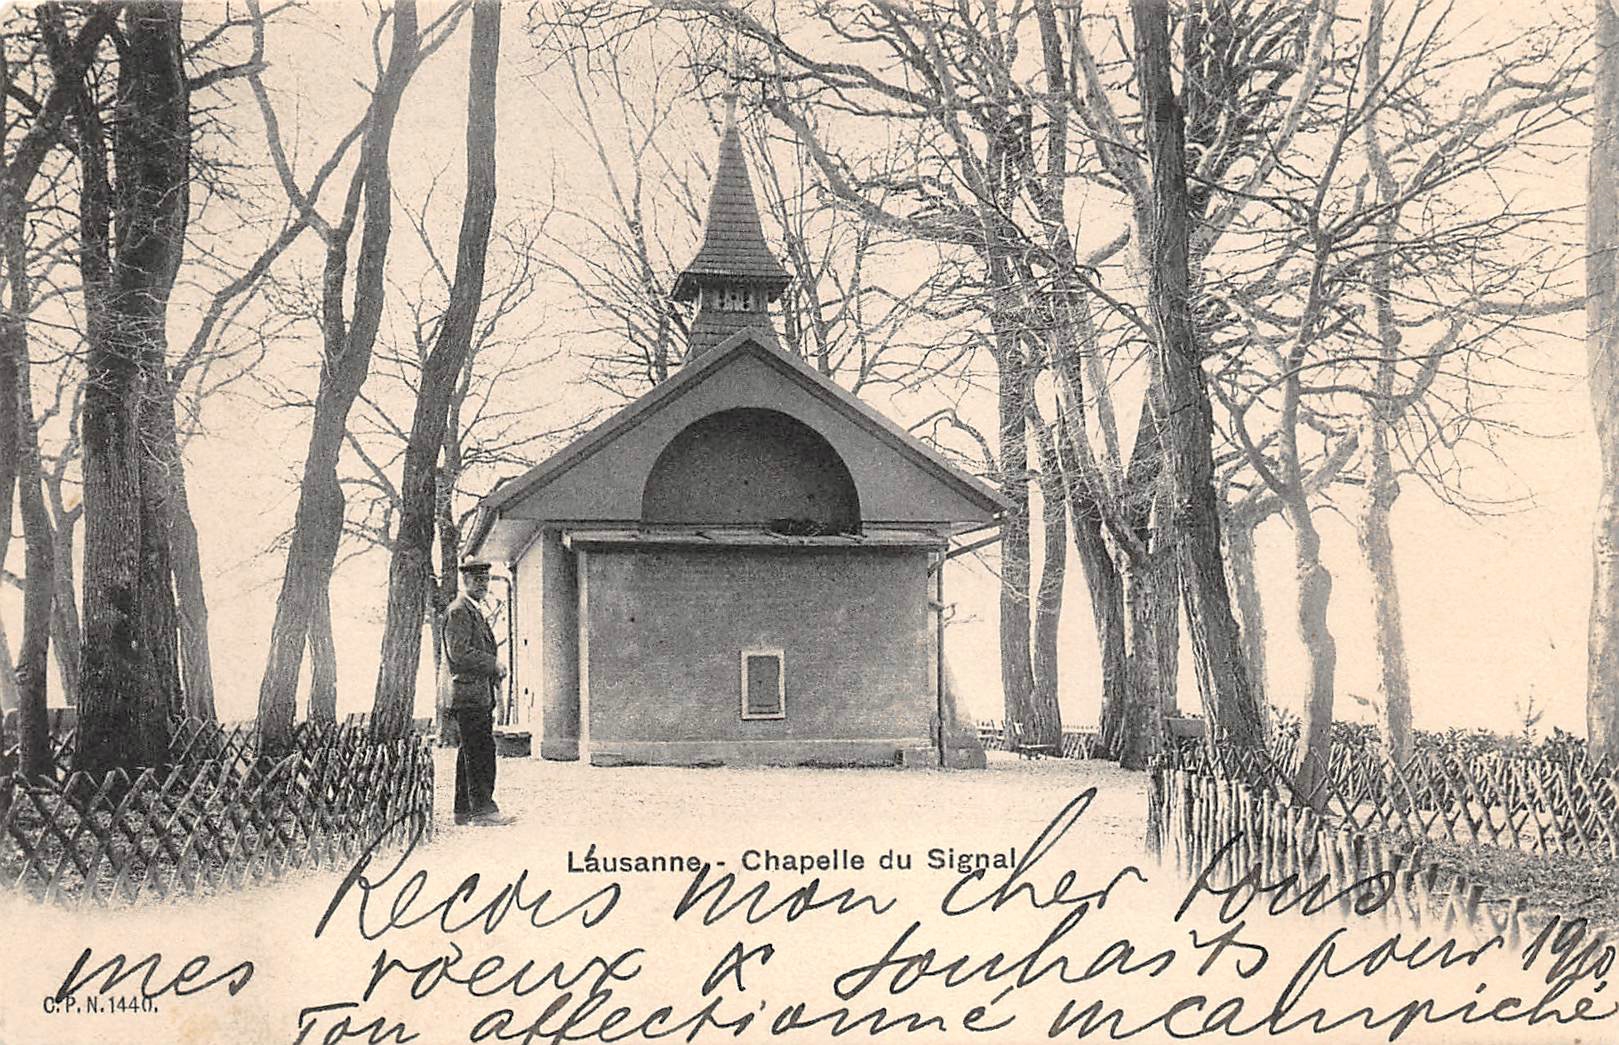 Lausanne - Chapelle du Signal
Recois mon cher tous
mes voeux & souhaits pour 1910
C.P.N. 1440.
Ton affectionné